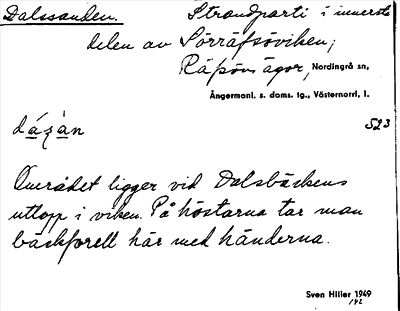 Dalssanden. Strandparti i innerste
delen av Sörräfsöviken;
Räfsöns ägor, Nordingrå sn,
Ångermanl. s. doms. tg., Västernorrl. l.
dázàn 523
Området ligger vid Dalsbäckens
utlopp i viken. På höstarna tar man
bäckforell här med händerna.
Sven Hiller 1949